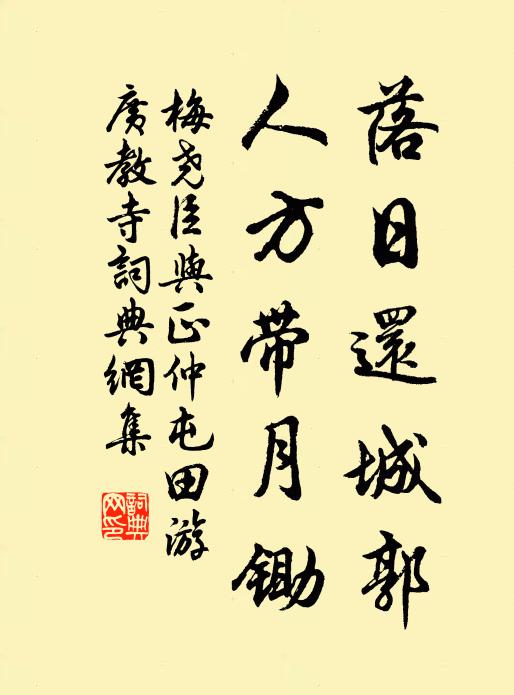 落日還城郭
人方带月鋤
梅尧臣與正仲屯田游
廣教寺詞典網集
詞典
网印